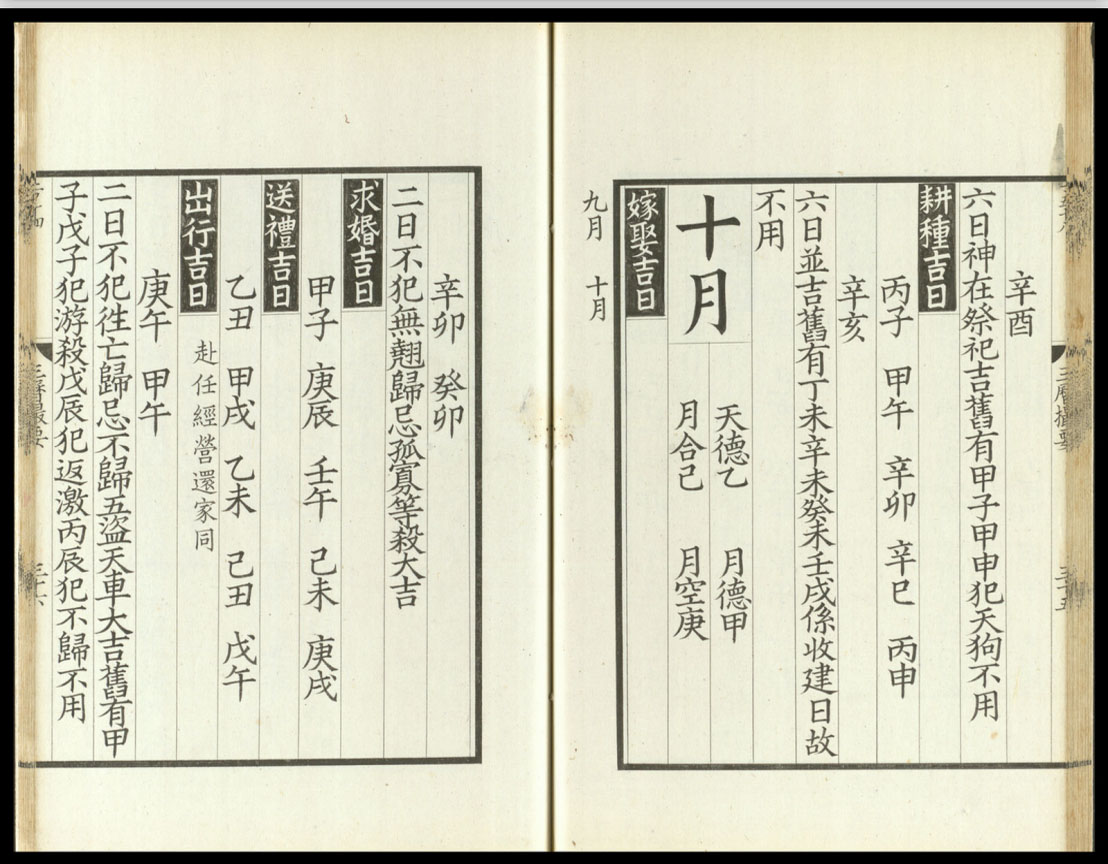 辛酉
六日神在祭祀吉舊有甲子甲申犯天狗不用
耕種吉日
丙子 甲午 辛卯 辛巳 丙申
辛亥
六日並吉舊有丁未辛未癸未壬戌係收建日故
不用
十月
天德乙 月德甲
月合己 月空庚
嫁娶吉日
九月 十月
辛卯 癸卯
二日不犯無翹歸忌孤寡等殺大吉
求婚吉日
甲子 庚辰 壬午 己未 庚戌
送禮吉日
乙丑 甲戌 乙未 己丑 戊午
出行吉日 赴任經營還家同
庚午 甲午
二日不犯徃亡歸忌不歸五盜天車大吉舊有甲
子戊子犯游殺戊辰犯返激丙辰犯不歸不用